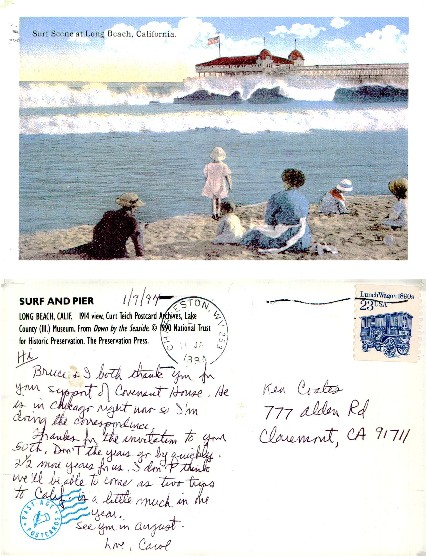 Surf Scene at Long Beach, California.
SURF AND PIER
LONG BEACH, CALIF. 1914 view. Curt Teich Postcard Archives, Lake
County (Ill.) Museum. From Down by the Seaside. © 1990 National Trust
for Historic Preservation. The Preservation Press.
1/9/94
CHARLESTON, WV 253
Lunch Wagon 1890s
23 USA
Hi
Bruce & I both thank you for
your support of Covenant House. He
is in Chicago right now so I'm
doing the correspondence.
Thanks for the invitation to your
50th. Don't the years go by quickly.
2 1/2 more years for us. I don't think
we'll be able to come as two trips
to Calif. is a little much in one
year.
See ym in August.
Love, Carol
Ken Crates
777 Alden Rd
Claremont, CA 91711
FAST ACT
POSTCARDS